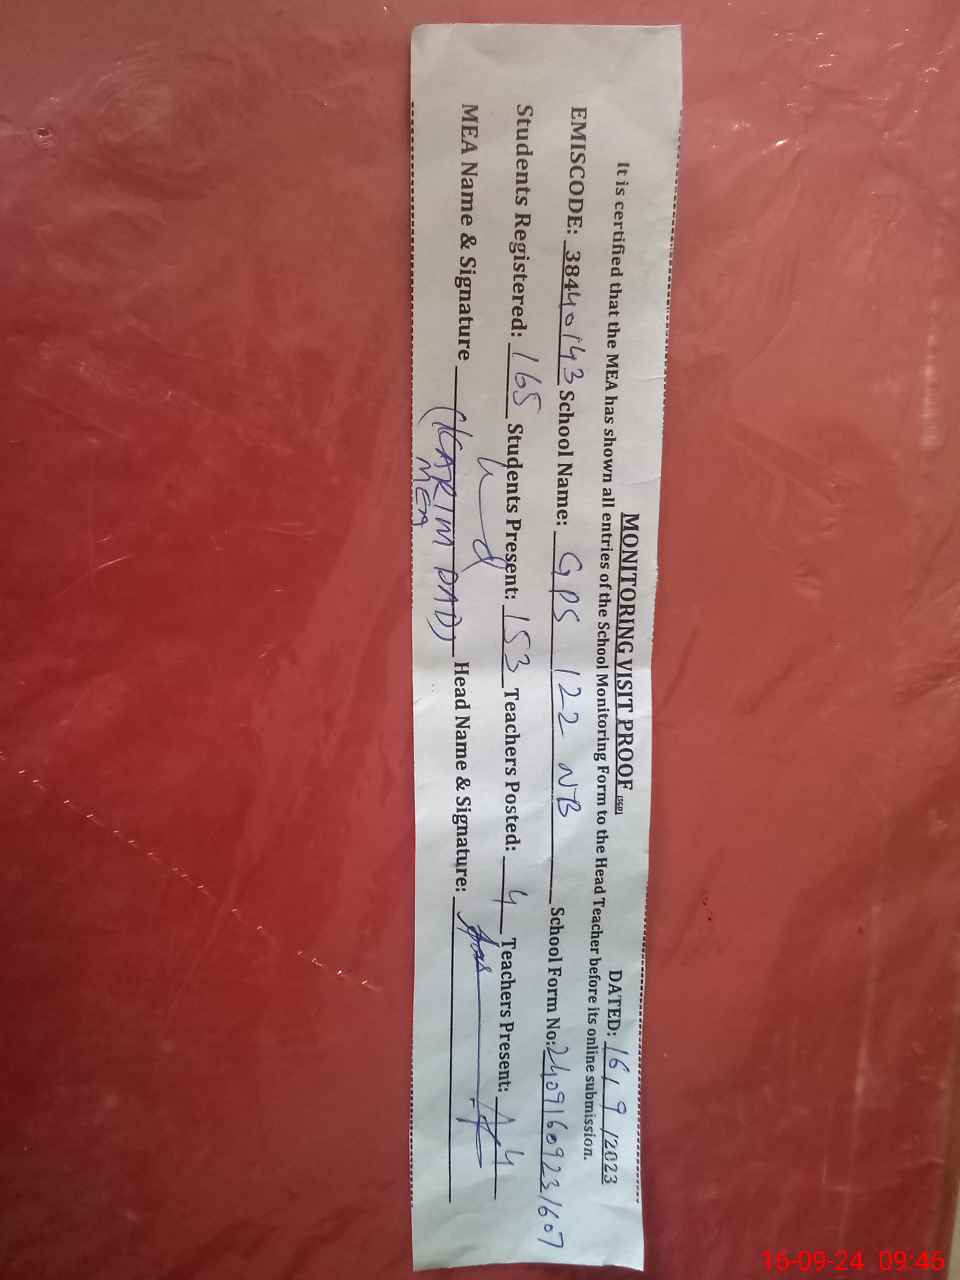 MONITORING VISIT PROOF (SGD) DATED: 16/9/2023
It is certified that the MEA has shown all entries of the School Monitoring Form to the Head Teacher before its online submission.
EMISCODE: 38440143 School Name: GPS 122 NB School Form No: 24091609231607
Students Registered: 165 Students Present: 153 Teachers Posted: 4 Teachers Present: 4
MEA Name & Signature (KARIM DAD) Head Name & Signature:
MEA
16-09-24 09:46